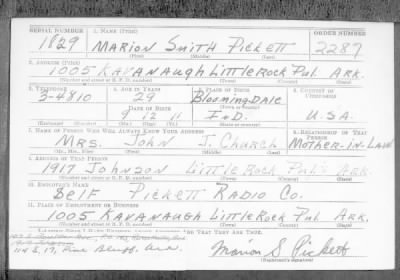 SERIAL NUMBER 1. NAME (Print) ORDER NUMBER
1829 MARION SMITH PICKETT 2287
(First) (Middle) (Last)
2. ADDRESS (Print)
1005 KAVANAUGH LITTLE ROCK PUL. ARK.
(Number and street or R. F. D. number) (Town) (County) (State)
3. TELEPHONE 4. AGE IN YEARS 5. PLACE OF BIRTH 6. COUNTRY OF CITIZENSHIP
3-4810 29 BLOOMINGDALE
DATE OF BIRTH (Town or county)
9 12 11 IND. U.S.A.
(Exchange) (Number) (Mo.) (Day) (Yr.) (State or country)
7. NAME OF PERSON WHO WILL ALWAYS KNOW YOUR ADDRESS 8. RELATIONSHIP OF THAT PERSON
MRS. JOHN J. CHURCH MOTHER-IN-LAW
(Mr., Mrs., Miss) (First) (Middle) (Last)
9. ADDRESS OF THAT PERSON
1917 JOHNSON LITTLE ROCK PUL. ARK.
(Number and street or R. F. D. number) (Town) (County) (State)
10. EMPLOYER'S NAME
SELF PICKETT RADIO CO.
11. PLACE OF EMPLOYMENT OR BUSINESS
1005 KAVANAUGH LITTLE ROCK PUL. ARK.
(Number and street or R. F. D. number) (Town) (County) (State)
THAT THEY ARE TRUE.
Pine Bluff, Ark. Marion S. Pickett
(Registrant's signature)